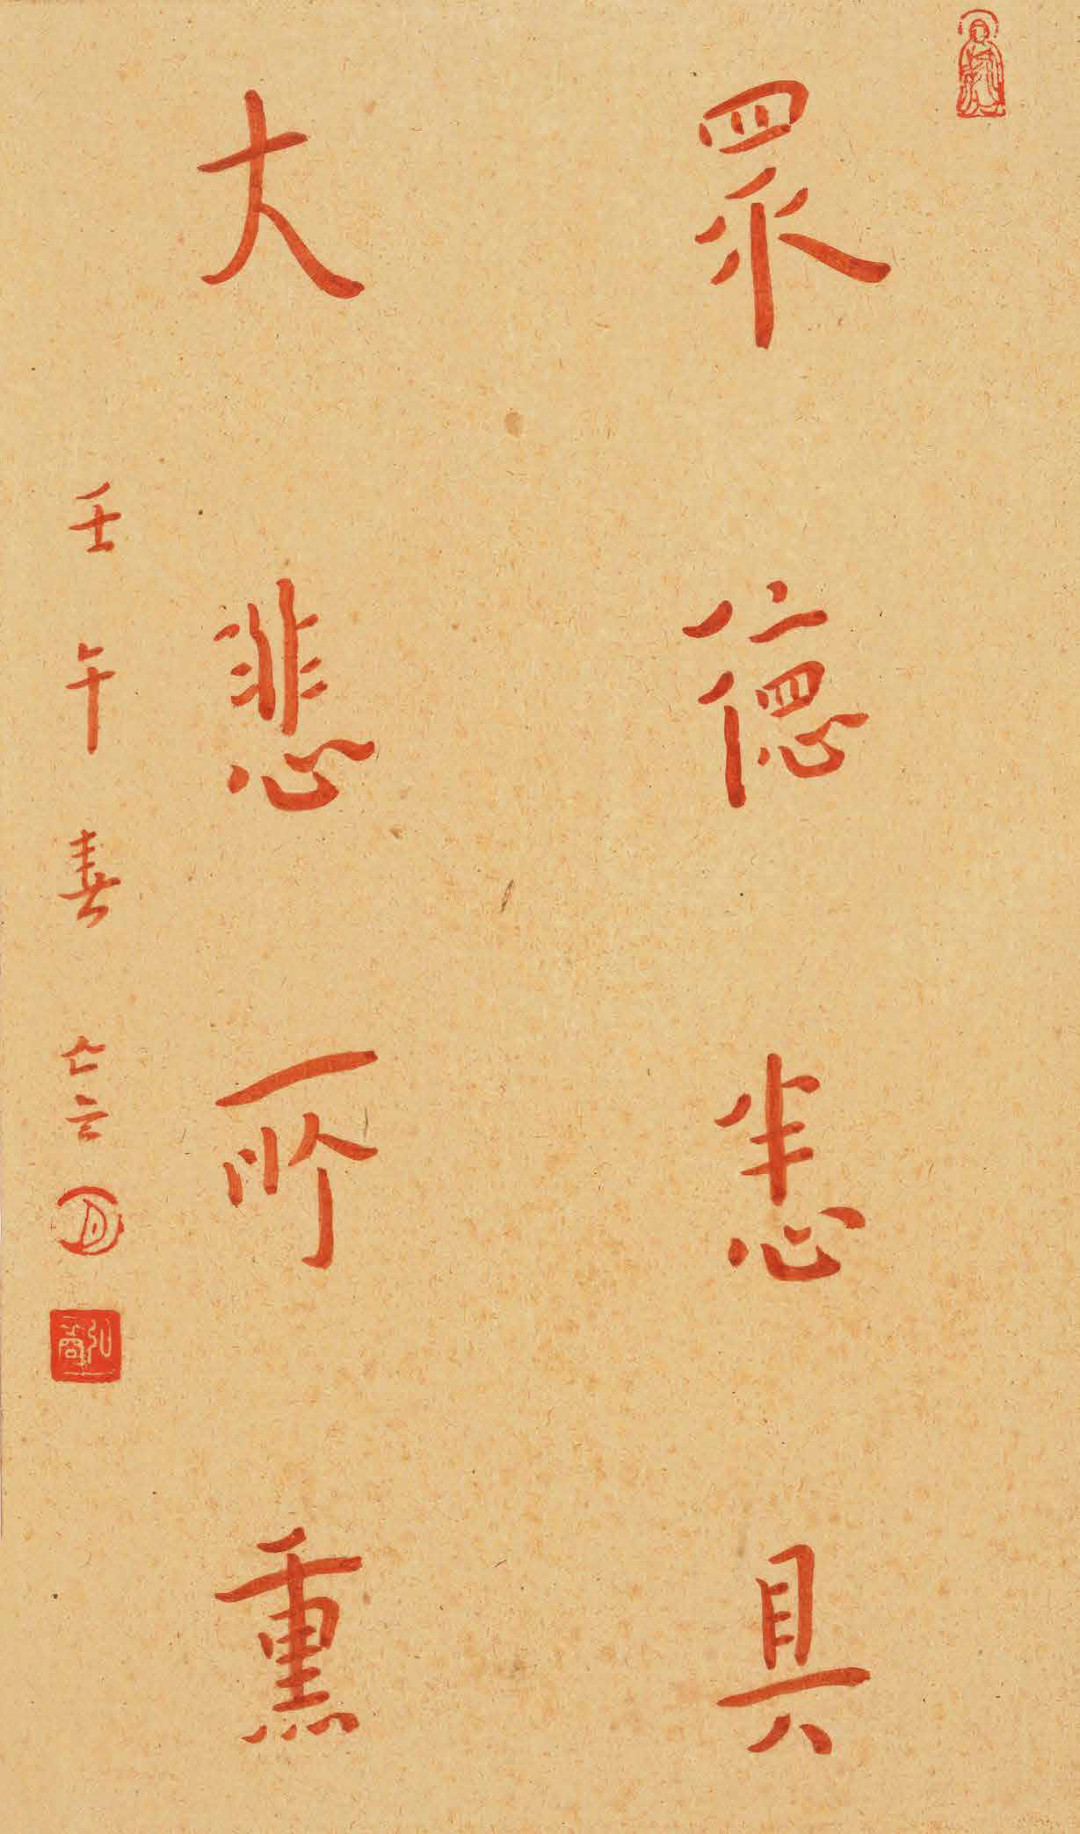 眾德悉具
大悲所熏
壬午春亡言
弘裔